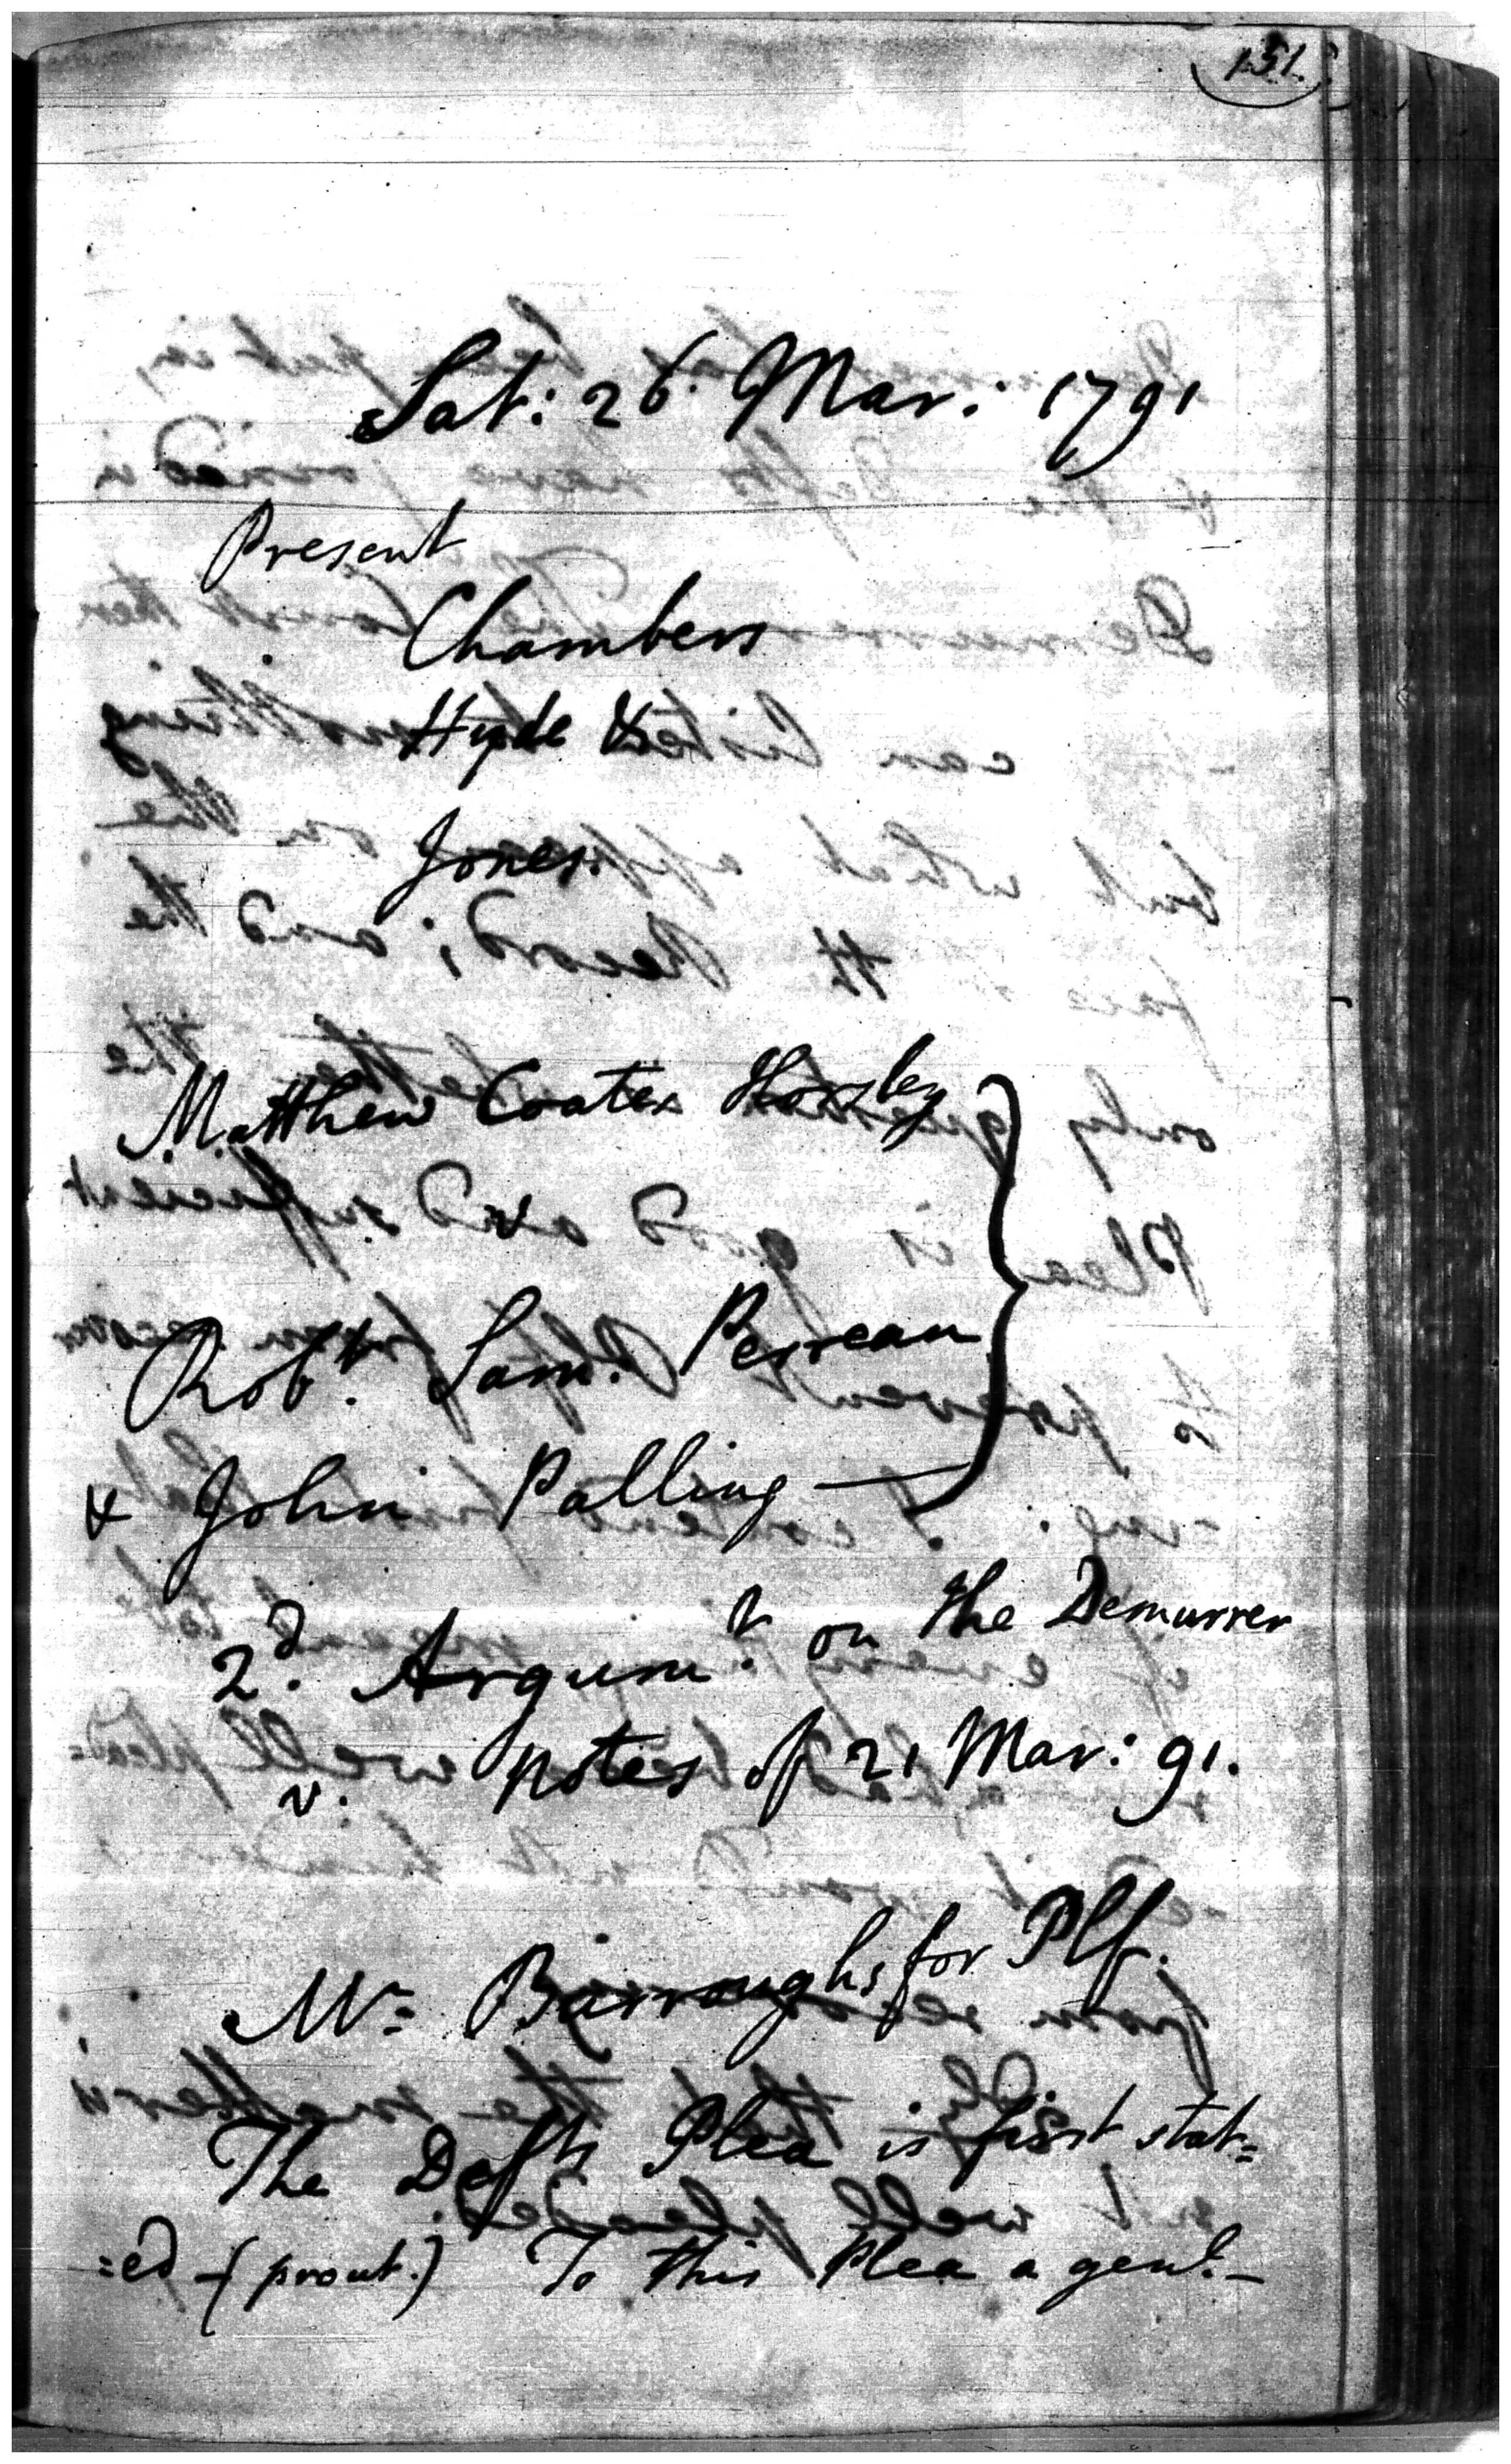 151.
Sat: 26. Mar: 1791
Present
Chambers
Hyde &
Jones.
Matthew Coates Horsley
v
Robt. Sam. Perreau
& John Palling —
2d. Argumt. on the Demurrer
v. notes of 21 Mar: 91.
Mr= Burroughs for Plf.
The Defts Plea is first stat=
=ed - (prout.) To this Plea a genl. -